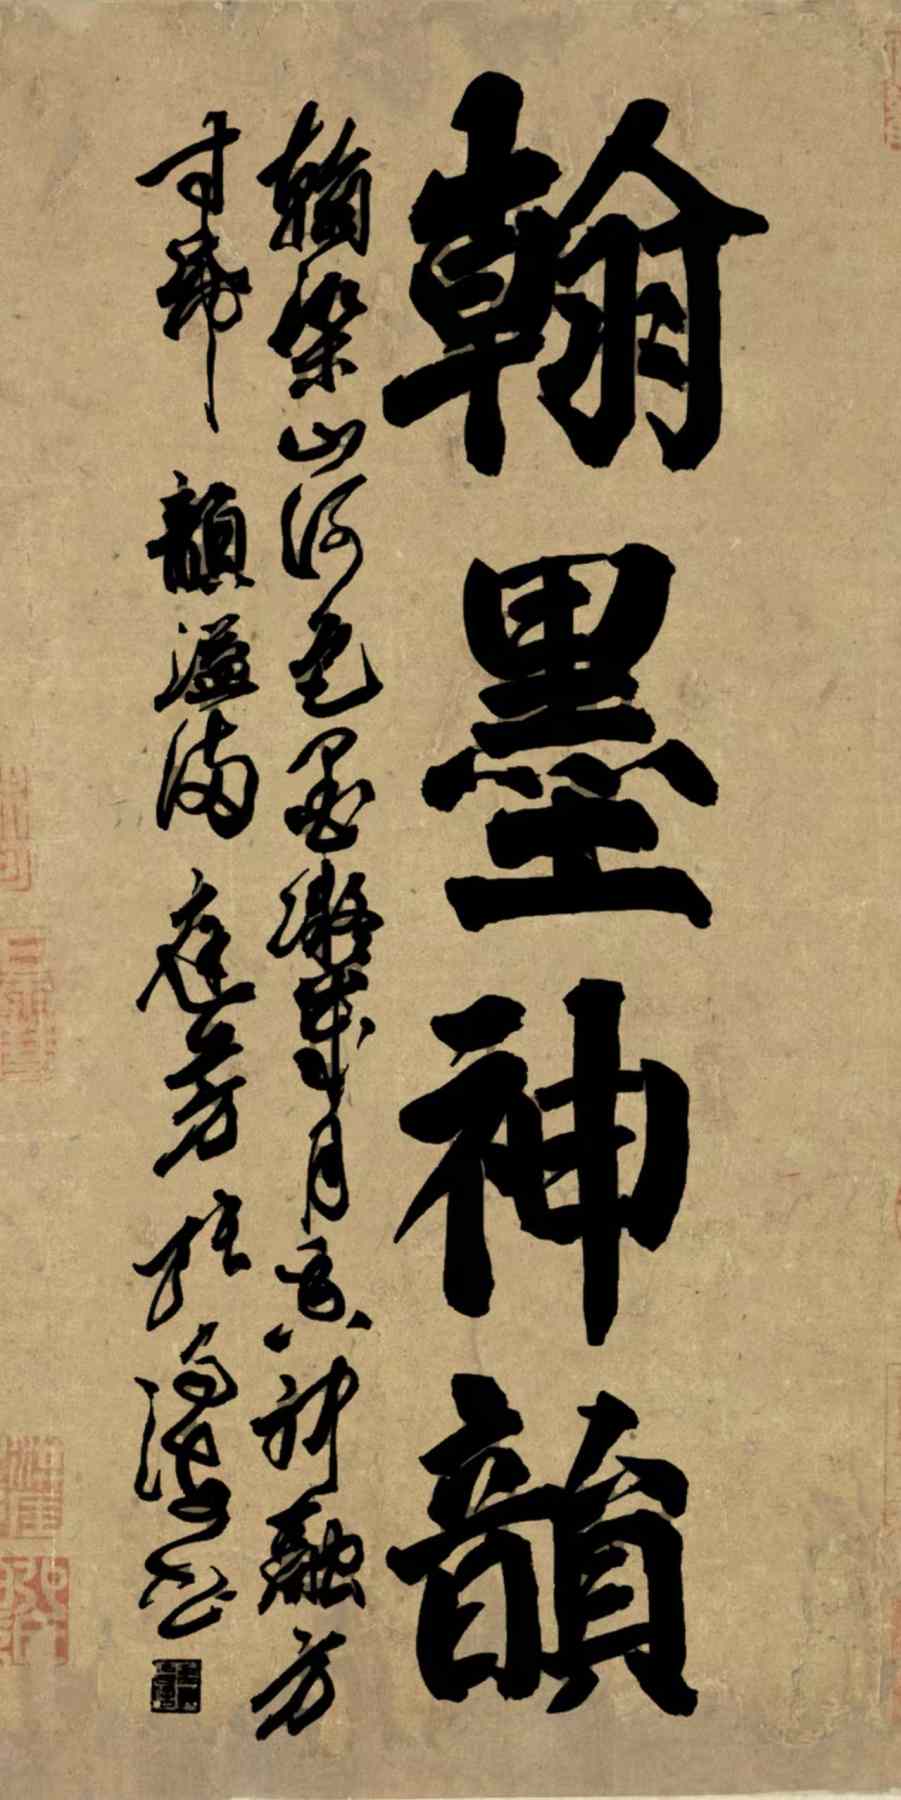 翰墨神韻
翰染山河色墨凝歲月香神融方
寸 韻溢滿庭芳 張 書